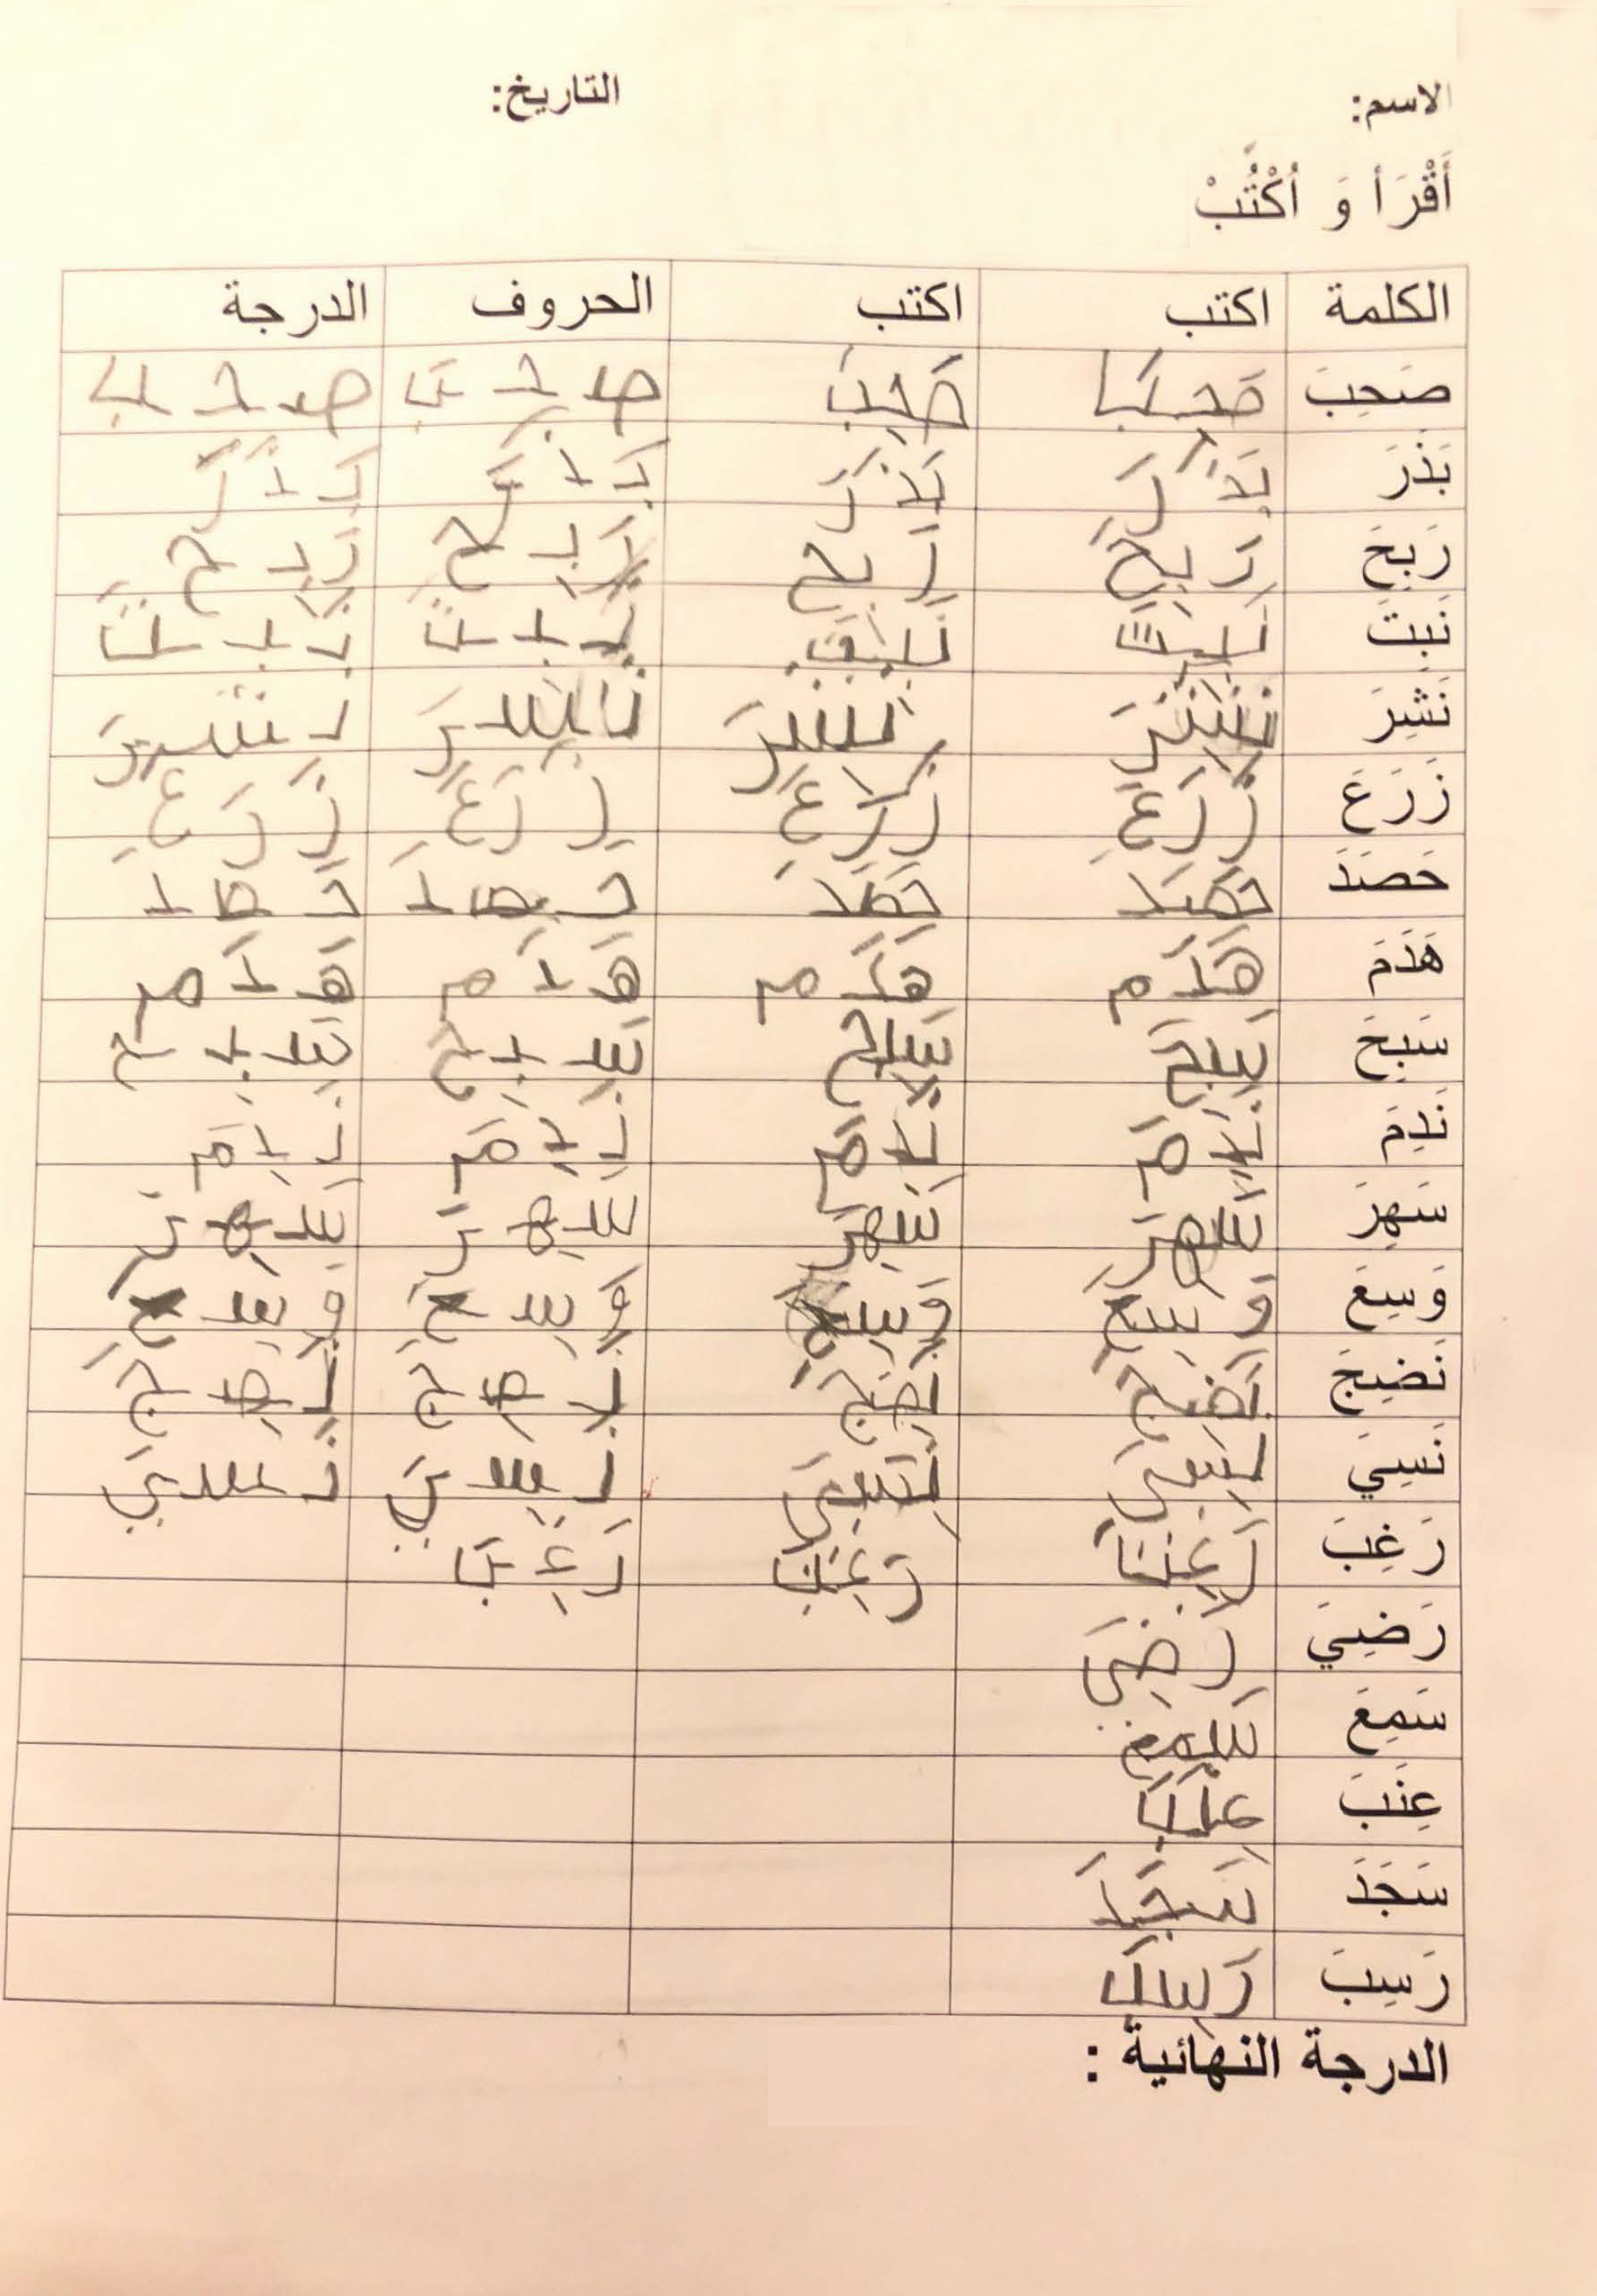 الاسم: التاريخ:
أَقْرَأ وَ أكْتُبْ
الكلمة اكتب اكتب الحروف الدرجة
صَحِبَ صَحِبَ صَحِبَ صـ حـ ـب صـ حـ ـب
بَذَرَ بَذَرَ بَذَرَ بَ ذَ رَ بَ ذَ رَ
رَبِحَ رَبِحَ رَبِحَ رَ بـ ح رَ بـ ح
نَبَتَ نَبَتَ نَبَتَ نـ بـ ـت نـ بـ ـت
نَشِرَ
زَرَعَ زَرَعَ زَرَعَ زَ رَ عَ زَ رَ عَ
حَصَدَ حَصَدَ حَصَدَ حـ صـ د حـ صـ د
هَدَمَ هَدَمَ هَدَم هـ دَ م هـ دَ م
سَبِحَ سَبِحَ سَبِحَ سـ بـ ح سـ بـ ح
نَدِمَ نَدِمَ نَدِمَ نـ دِ مَ نـ دِ مَ
سَهِرَ سَهِرَ سَهِرَ سـ هـ رَ سـ هـ رَ
وَسِعَ وَسِعَ وَسِعَ وَ سـ ع وَ سـ ع
نَضِجَ نَضِجَ نَضِجَ نـ ضـ ج نـ ضـ ج
نَسِيَ نَسِيَ نَسِيَ نـ سـ يَ نـ سـ يَ
رَغِبَ رَغِبَ رَغِبَ رَ غِ بَ
رَضِيَ رَضِيَ
سَمِعَ سَمِعَ
عِنَبَ عِنَبَ
سَجَدَ سَجَدَ
رَسِبَ رَسِبَ
الدرجة النهائية :